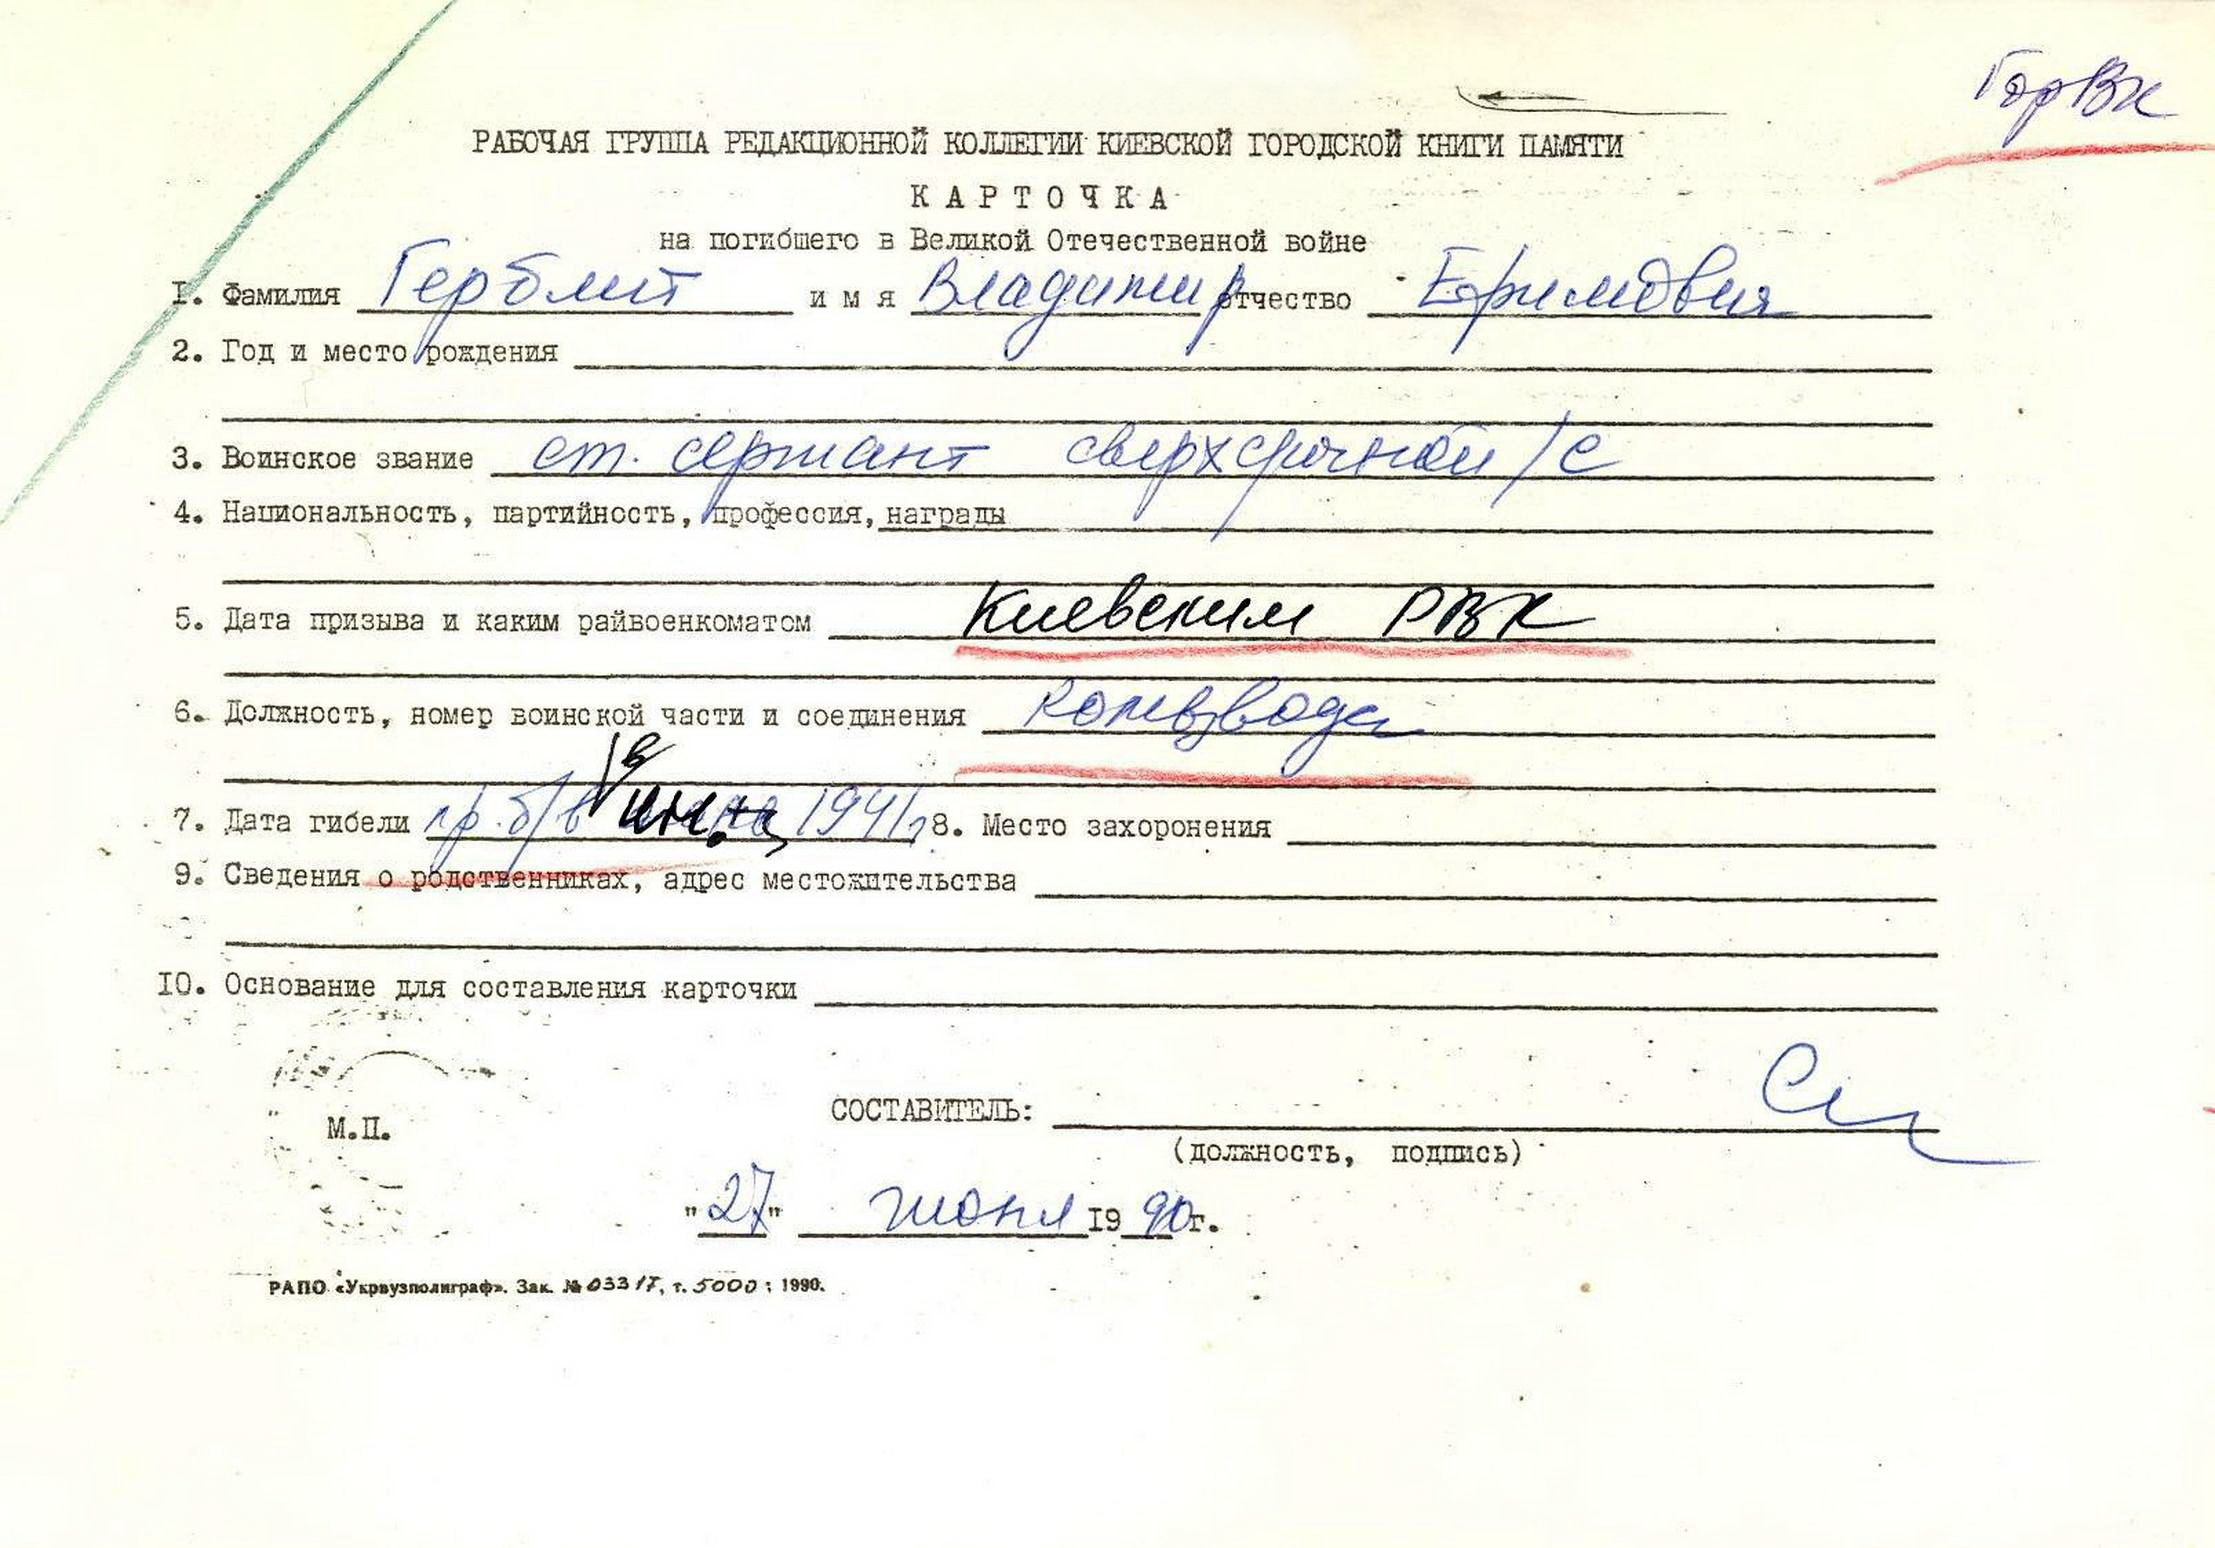 ГорВК
РАБОЧАЯ ГРУППА РЕДАКЦИОННОЙ КОЛЛЕГИИ КИЕВСКОЙ ГОРОДСКОЙ КНИГИ ПАМЯТИ
КАРТОЧКА
на погибшего в Великой Отечественной войне
1. Фамилия Герблит имя Владимир отчество Ефимович
2. Год и место рождения
3. Воинское звание ст. сержант сверхсрочной /с
4. Национальность, партийность, профессия, награды
5. Дата призыва и каким райвоенкоматом Киевским РВК
6. Должность, номер воинской части и соединения комвзвода
в
7. Дата гибели пр. б/в 1941г 8. Место захоронения
9. Сведения о родственниках, адрес местожительства
10. Основание для составления карточки
СОСТАВИТЕЛЬ:
М.П.
(должность, подпись)
"27" июня 1990г.
РАПО «Укрвузполиграф». Зак. № 0331Т, т. 5000; 1990.